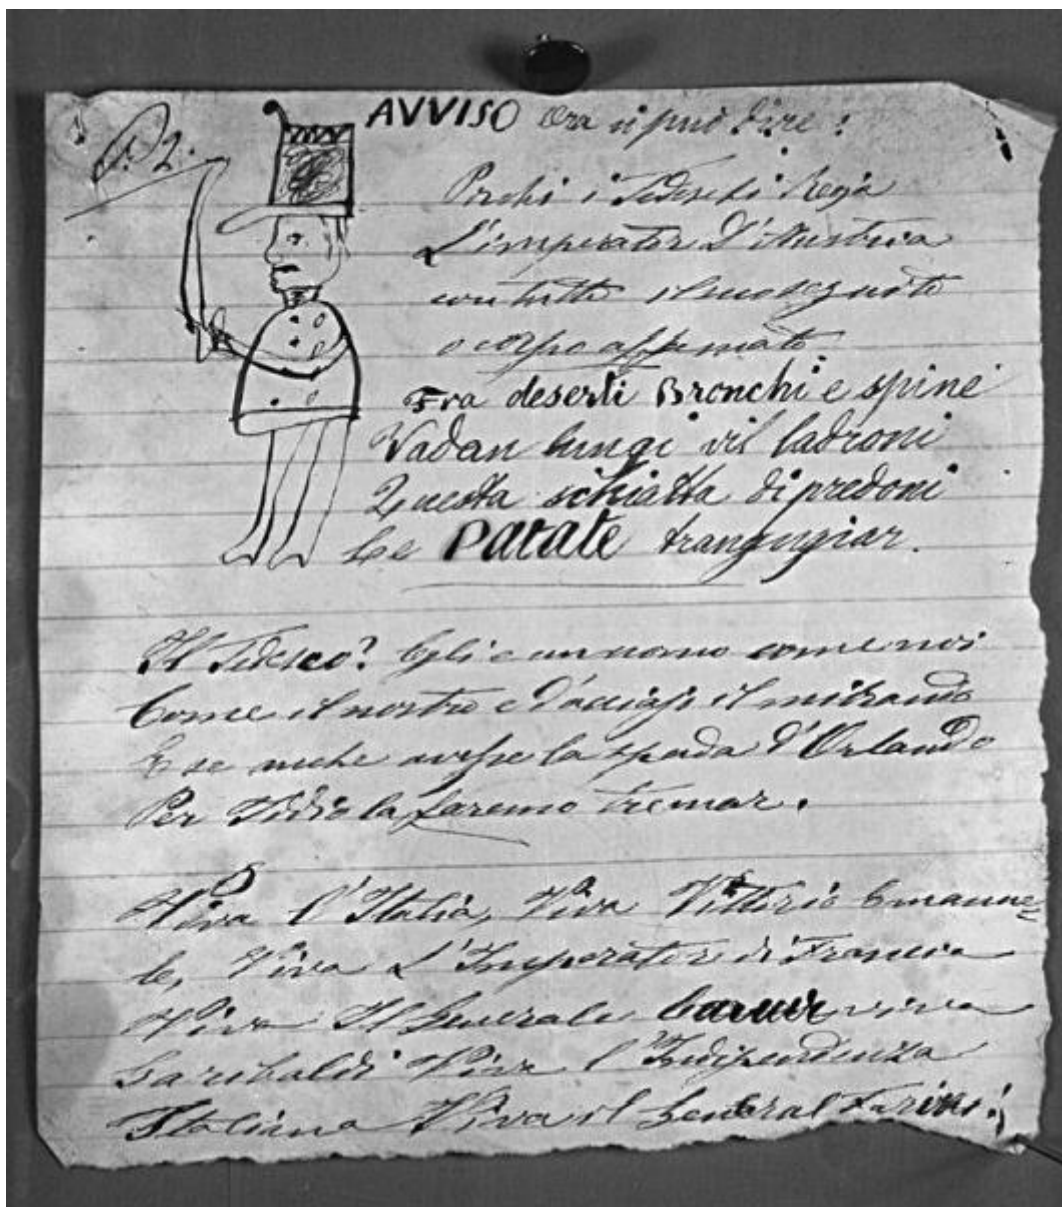 P. 2.
AVVISO Ora si può dire:
Porchi i Tedeschi Regia
L'imperator D'Austria
con tutto il suo seguito
o corpo affamato:
Fra deserti Bronchi e spine
Vadan lungi vil ladroni
Questa schiatta di predoni
Le Patate trangugiar.
Il Tedesco? Egli è un uomo come noi
Come il nostro è d'acciajo il suo brando
E se anche avesse la spada d'Orlando
Per Iddio la faremo tremar.
Viva l'Italia, Viva Vittorio Emanue=
le, Viva L'Imperator di Francia
Viva Il Generale viva
Garibaldi Viva l'Indipendenza
Italiana Viva il General Farini!